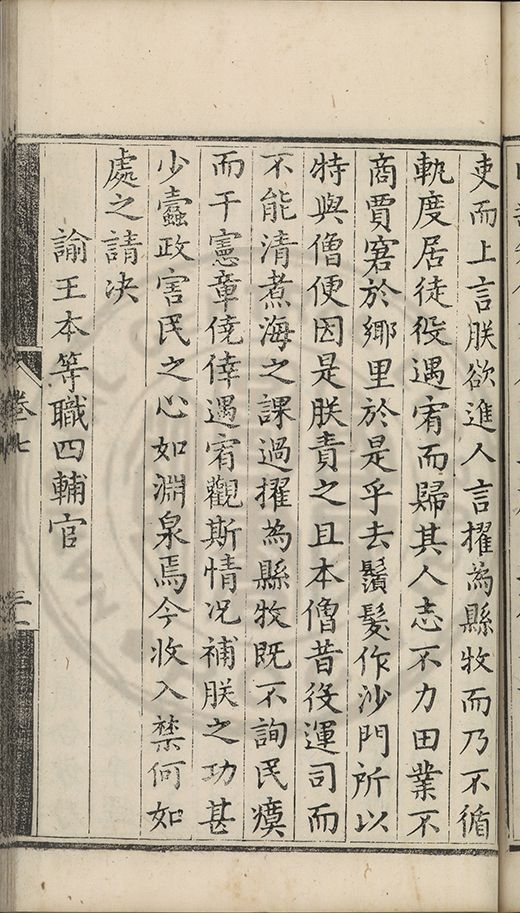 吏而上言朕欲進人言擢為縣牧而乃不循
軌度居徒役遇宥而歸其人志不力田業不
商賈窘於鄉里於是乎去鬚髮作沙門所以
特與僧便因是朕責之且本僧昔役運司而
不能清煮海之課過擢為縣牧既不詢民瘼
而干憲章僥倖遇宥觀斯情况補朕之功甚
少蠧政害民之心如淵泉焉今收入禁何如
處之請决
諭王本等職四輔官
卷七